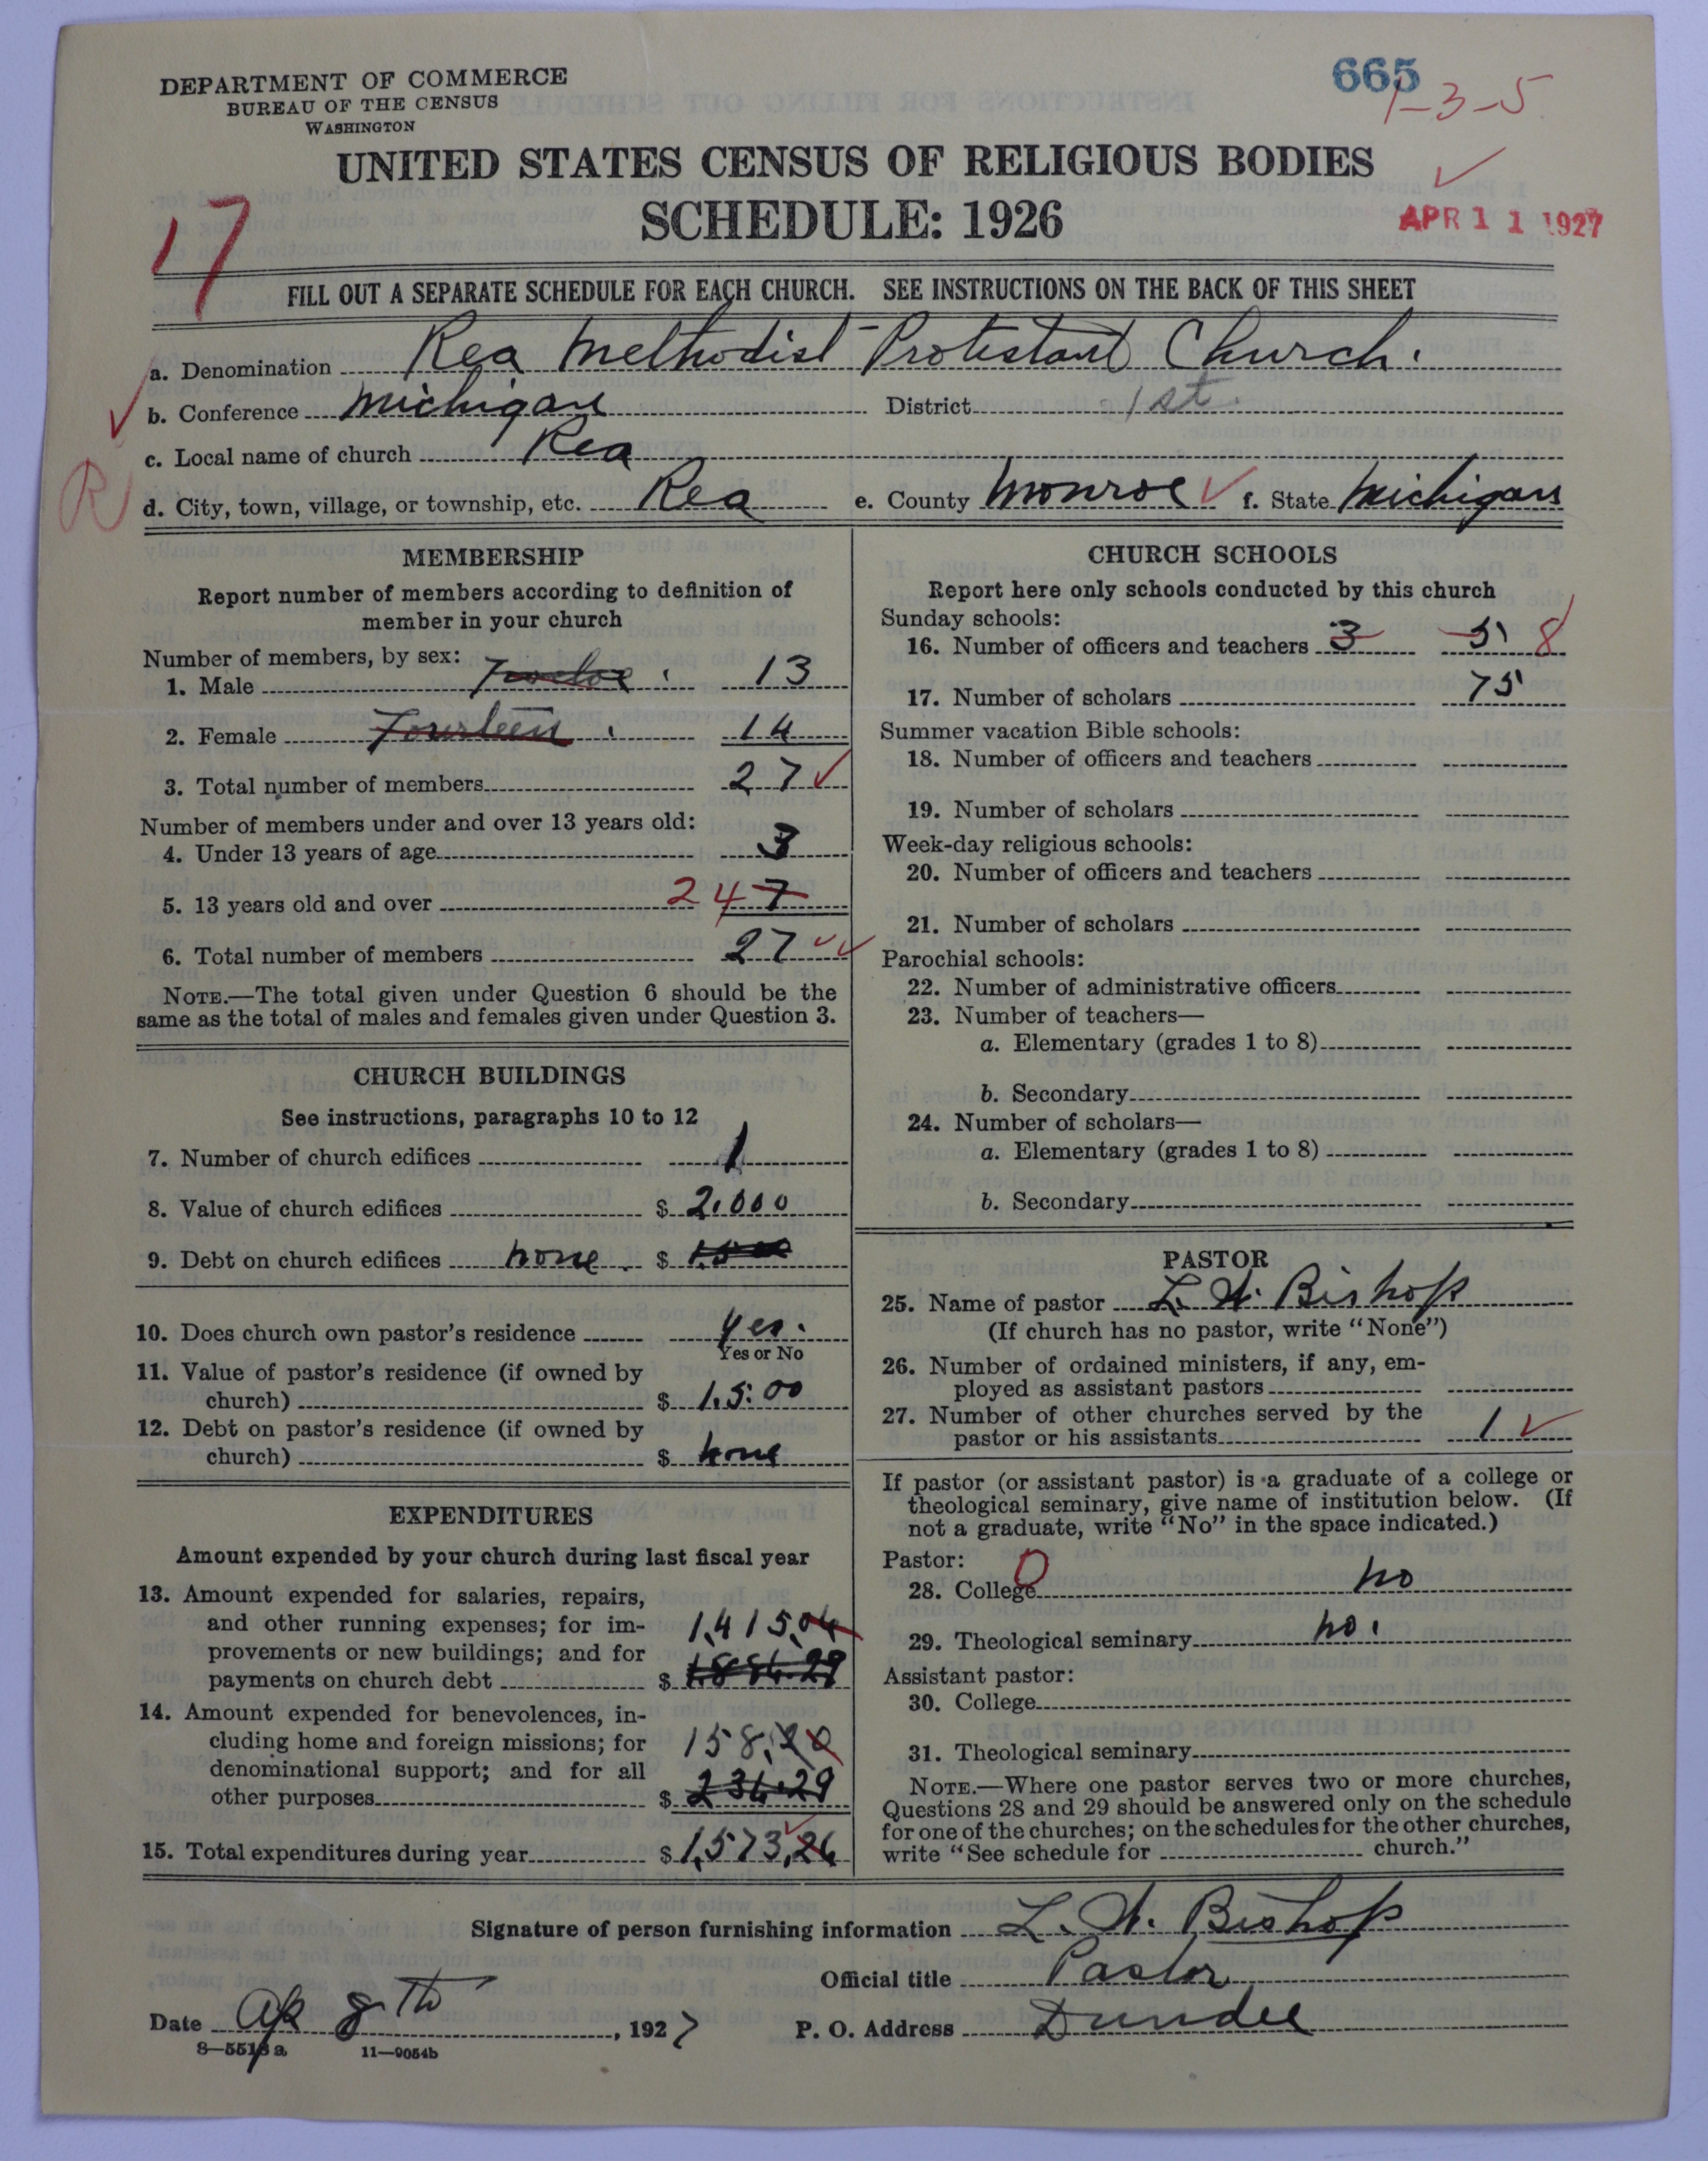 DEPARTMENT OF COMMERCE
BUREAU OF THE CENSUS
WASHINGTON
665
1-3-5
UNITED STATES CENSUS OF RELIGIOUS BODIES
SCHEDULE: 1926
APR 11 1927
17
FILL OUT A SEPARATE SCHEDULE FOR EACH CHURCH. SEE INSTRUCTIONS ON THE BACK OF THIS SHEET
a. Denomination Rea Methodist-Protestant Church.
b. Conference Michigan District 1st.
c. Local name of church Rea
R
d. City, town, village, or township, etc. Rea e. County Monroe f. State Michigan
MEMBERSHIP
Report number of members according to definition of
member in your church
Number of members, by sex:
1. Male Twelve 13
2. Female Fourteen 14
3. Total number of members 27
Number of members under and over 13 years old:
4. Under 13 years of age 3
5. 13 years old and over 24 7
6. Total number of members 27
NOTE.—The total given under Question 6 should be the
same as the total of males and females given under Question 3.
CHURCH BUILDINGS
See instructions, paragraphs 10 to 12
7. Number of church edifices 1
8. Value of church edifices $ 2,000
9. Debt on church edifices none $
10. Does church own pastor's residence yes.
Yes or No
11. Value of pastor's residence (if owned by
church) $ 1,500
12. Debt on pastor's residence (if owned by
church) $ none
EXPENDITURES
Amount expended by your church during last fiscal year
13. Amount expended for salaries, repairs,
and other running expenses; for im-
provements or new buildings; and for
payments on church debt $ 1,415,04
14. Amount expended for benevolences, in-
cluding home and foreign missions; for
denominational support; and for all
other purposes $ 158,20
234.29
15. Total expenditures during year $ 1,573,24
CHURCH SCHOOLS
Report here only schools conducted by this church
Sunday schools:
16. Number of officers and teachers 3 5 8
17. Number of scholars 75
Summer vacation Bible schools:
18. Number of officers and teachers
19. Number of scholars
Week-day religious schools:
20. Number of officers and teachers
21. Number of scholars
Parochial schools:
22. Number of administrative officers
23. Number of teachers—
a. Elementary (grades 1 to 8)
b. Secondary
24. Number of scholars—
a. Elementary (grades 1 to 8)
b. Secondary
PASTOR
25. Name of pastor L. A. Bishop
(If church has no pastor, write "None")
26. Number of ordained ministers, if any, em-
ployed as assistant pastors
27. Number of other churches served by the
pastor or his assistants 1
If pastor (or assistant pastor) is a graduate of a college or
theological seminary, give name of institution below. (If
not a graduate, write "No" in the space indicated.)
Pastor: 0
28. College no
29. Theological seminary no.
Assistant pastor:
30. College
31. Theological seminary
NOTE.—Where one pastor serves two or more churches,
Questions 28 and 29 should be answered only on the schedule
for one of the churches; on the schedules for the other churches,
write "See schedule for church."
Signature of person furnishing information L. A. Bishop
Official title Pastor
Date Ap 8th, 1927 P. O. Address Dundee
8—5513a 11—9054b